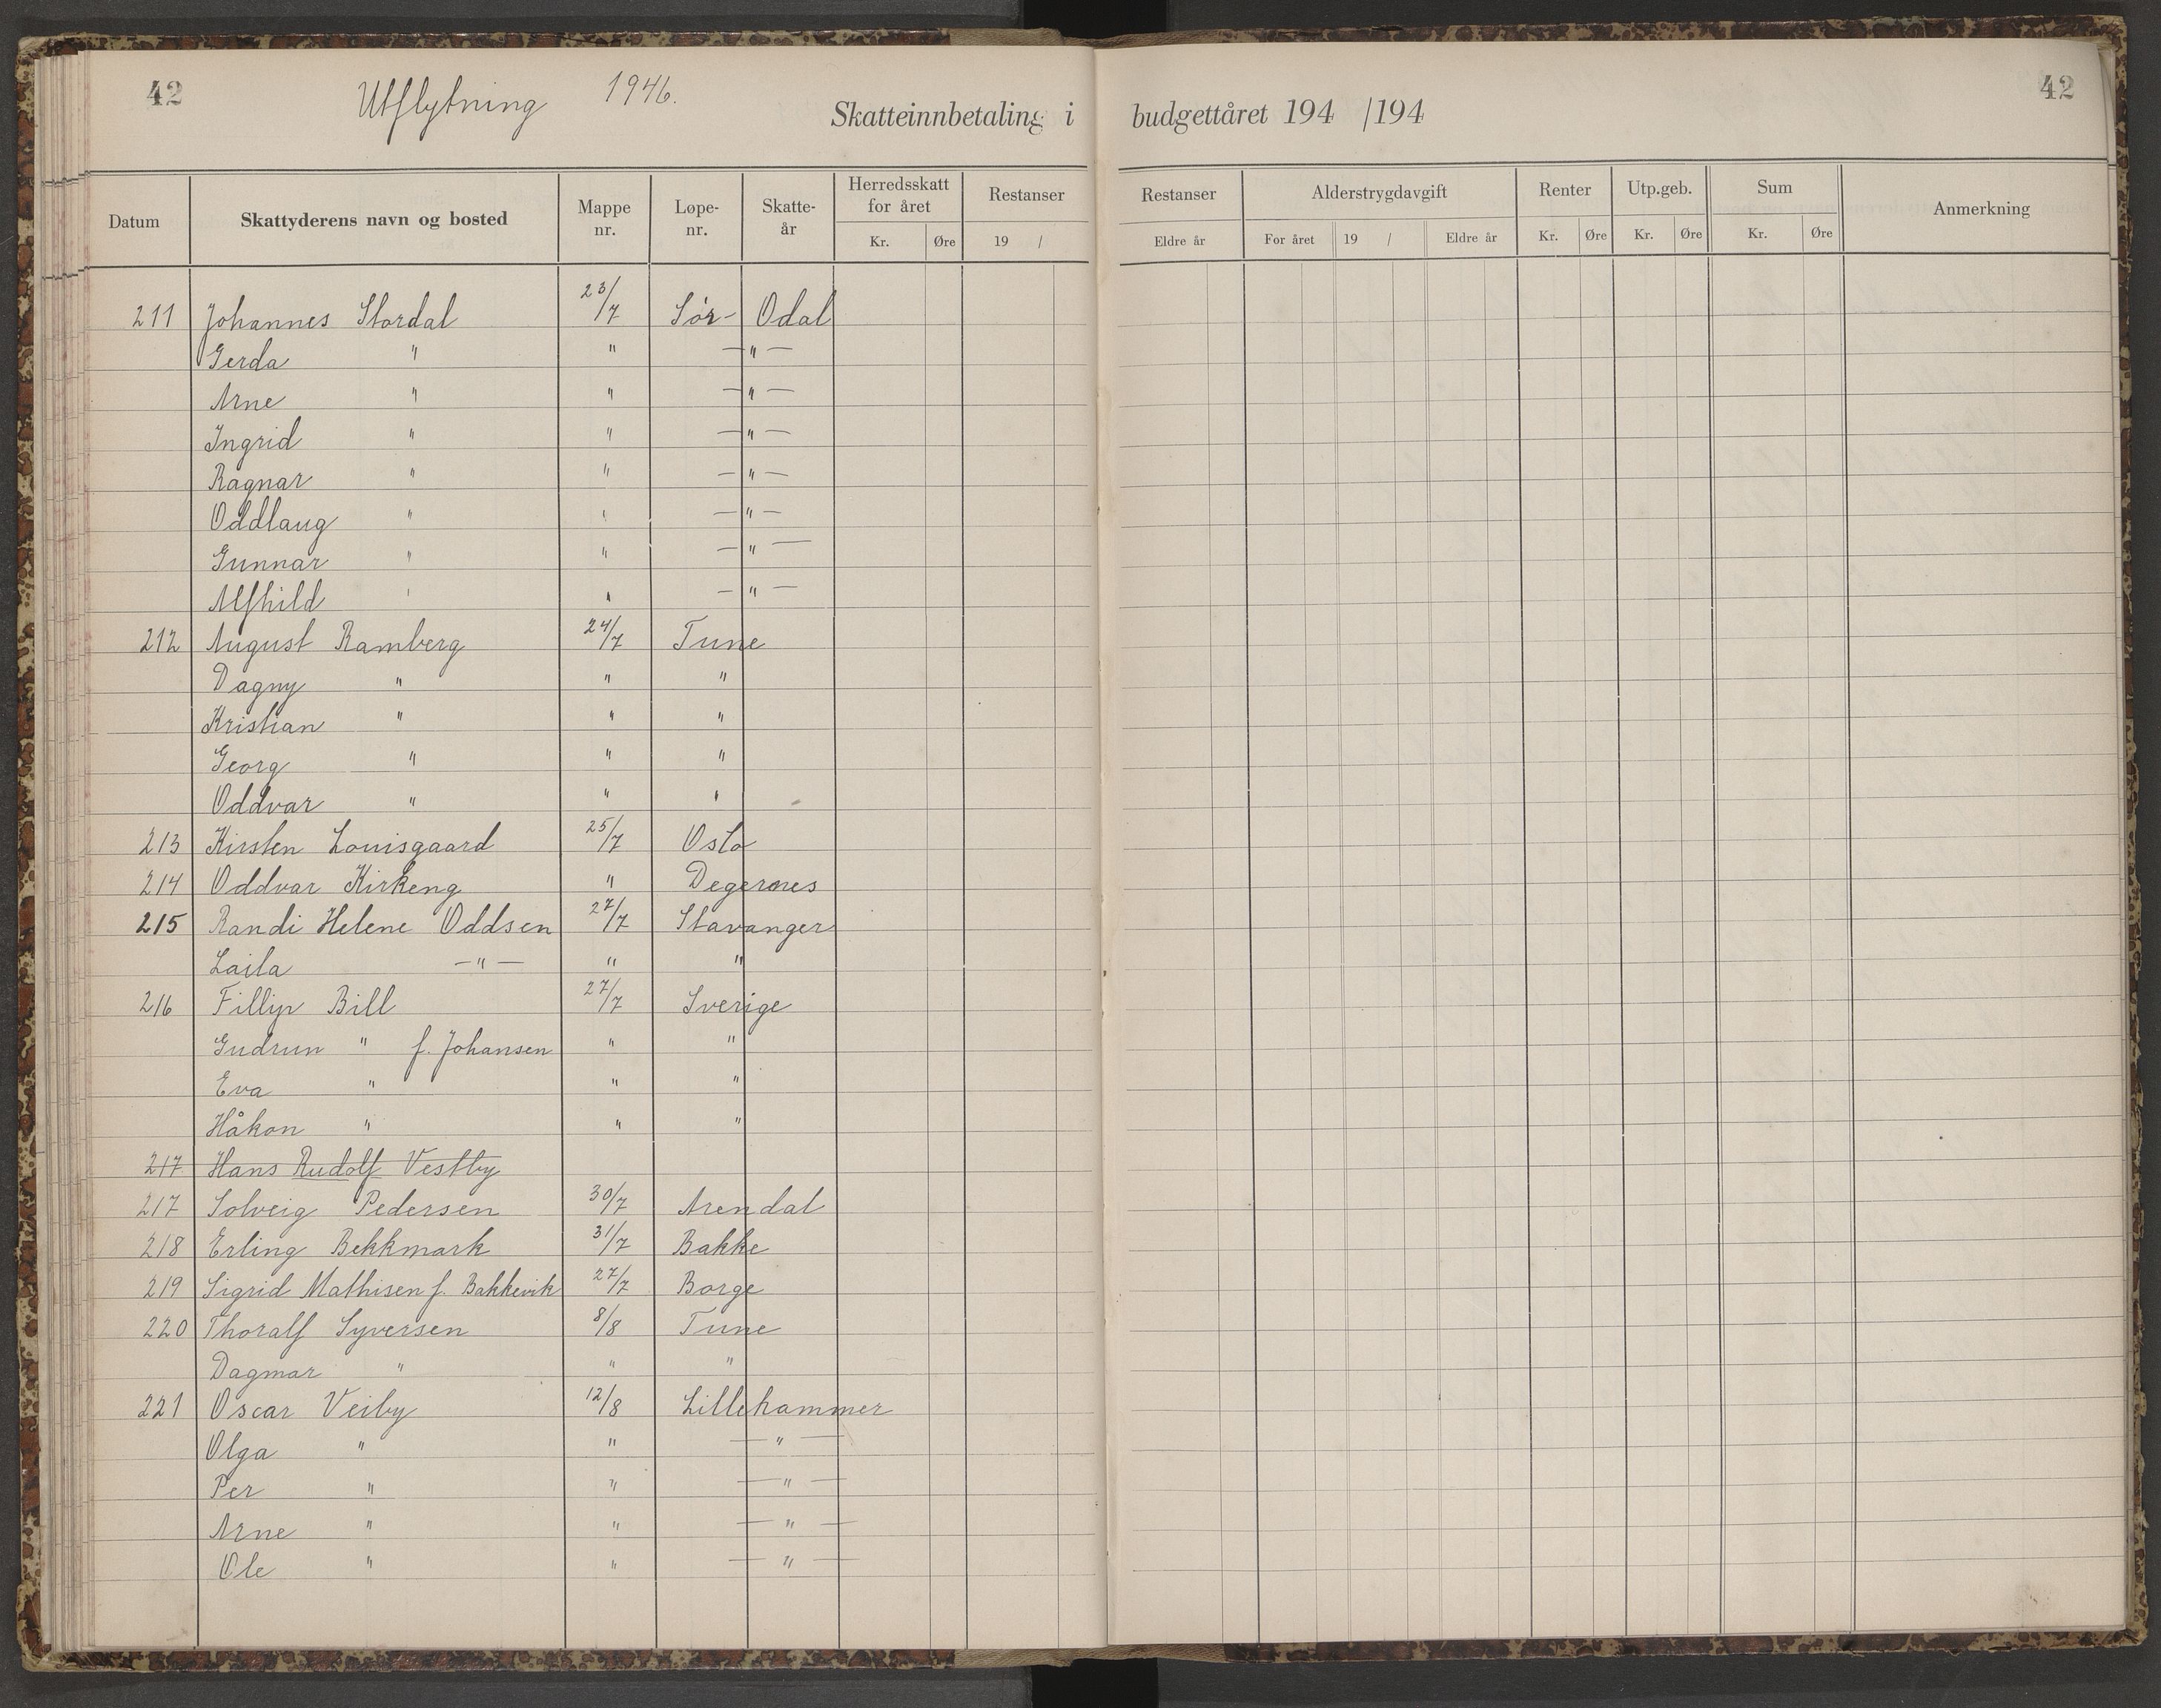 42
Utflytning 1946.
Skatteinnbetaling i budgettåret 194 /194
42
Datum Skattyderens navn og bosted Mappe nr. Løpe-nr. Skatte-år Herredsskatt for året Kr. Øre Restanser 19 / Restanser Eldre år Alderstrygdavgift For året 19 / Eldre år Renter Kr. Øre Utp.geb. Kr. Øre Sum Kr. Øre Anmerkning
211 Johannes Stordal 23/7 Sør-Odal
Gerda " " —"—
Arne " " —"—
Ingrid " " —"—
Ragnar " " —"—
Oddlaug " " —"—
Gunnar " " —"—
Alfhild " " —"—
212 August Ramberg 24/7 Tune
Dagny " " "
Kristian " " "
Georg " " "
Oddvar " " "
213 Kirsten Louisgaard 25/7 Oslo
214 Oddvar Kirkeng " Degernes
215 Randi Helene Oddsen 27/7 Stavanger
Laila —"— " "
216 Fillip Bill 27/7 Sverige
Gudrun " f. Johansen " "
Eva " " "
Håkon " " "
217 Hans Rudolf Vestby
217 Solveig Pedersen 30/7 Arendal
218 Erling Bekkmark 31/7 Bakke
219 Sigrid Mathisen f. Bakkevik 27/7 Borge
220 Thoralf Syversen 8/8 Tune
Dagmar " " "
221 Oscar Veiby 12/8 Lillehammer
Olga " " —"—
Per " " —"—
Arne " " —"—
Ole " " —"—